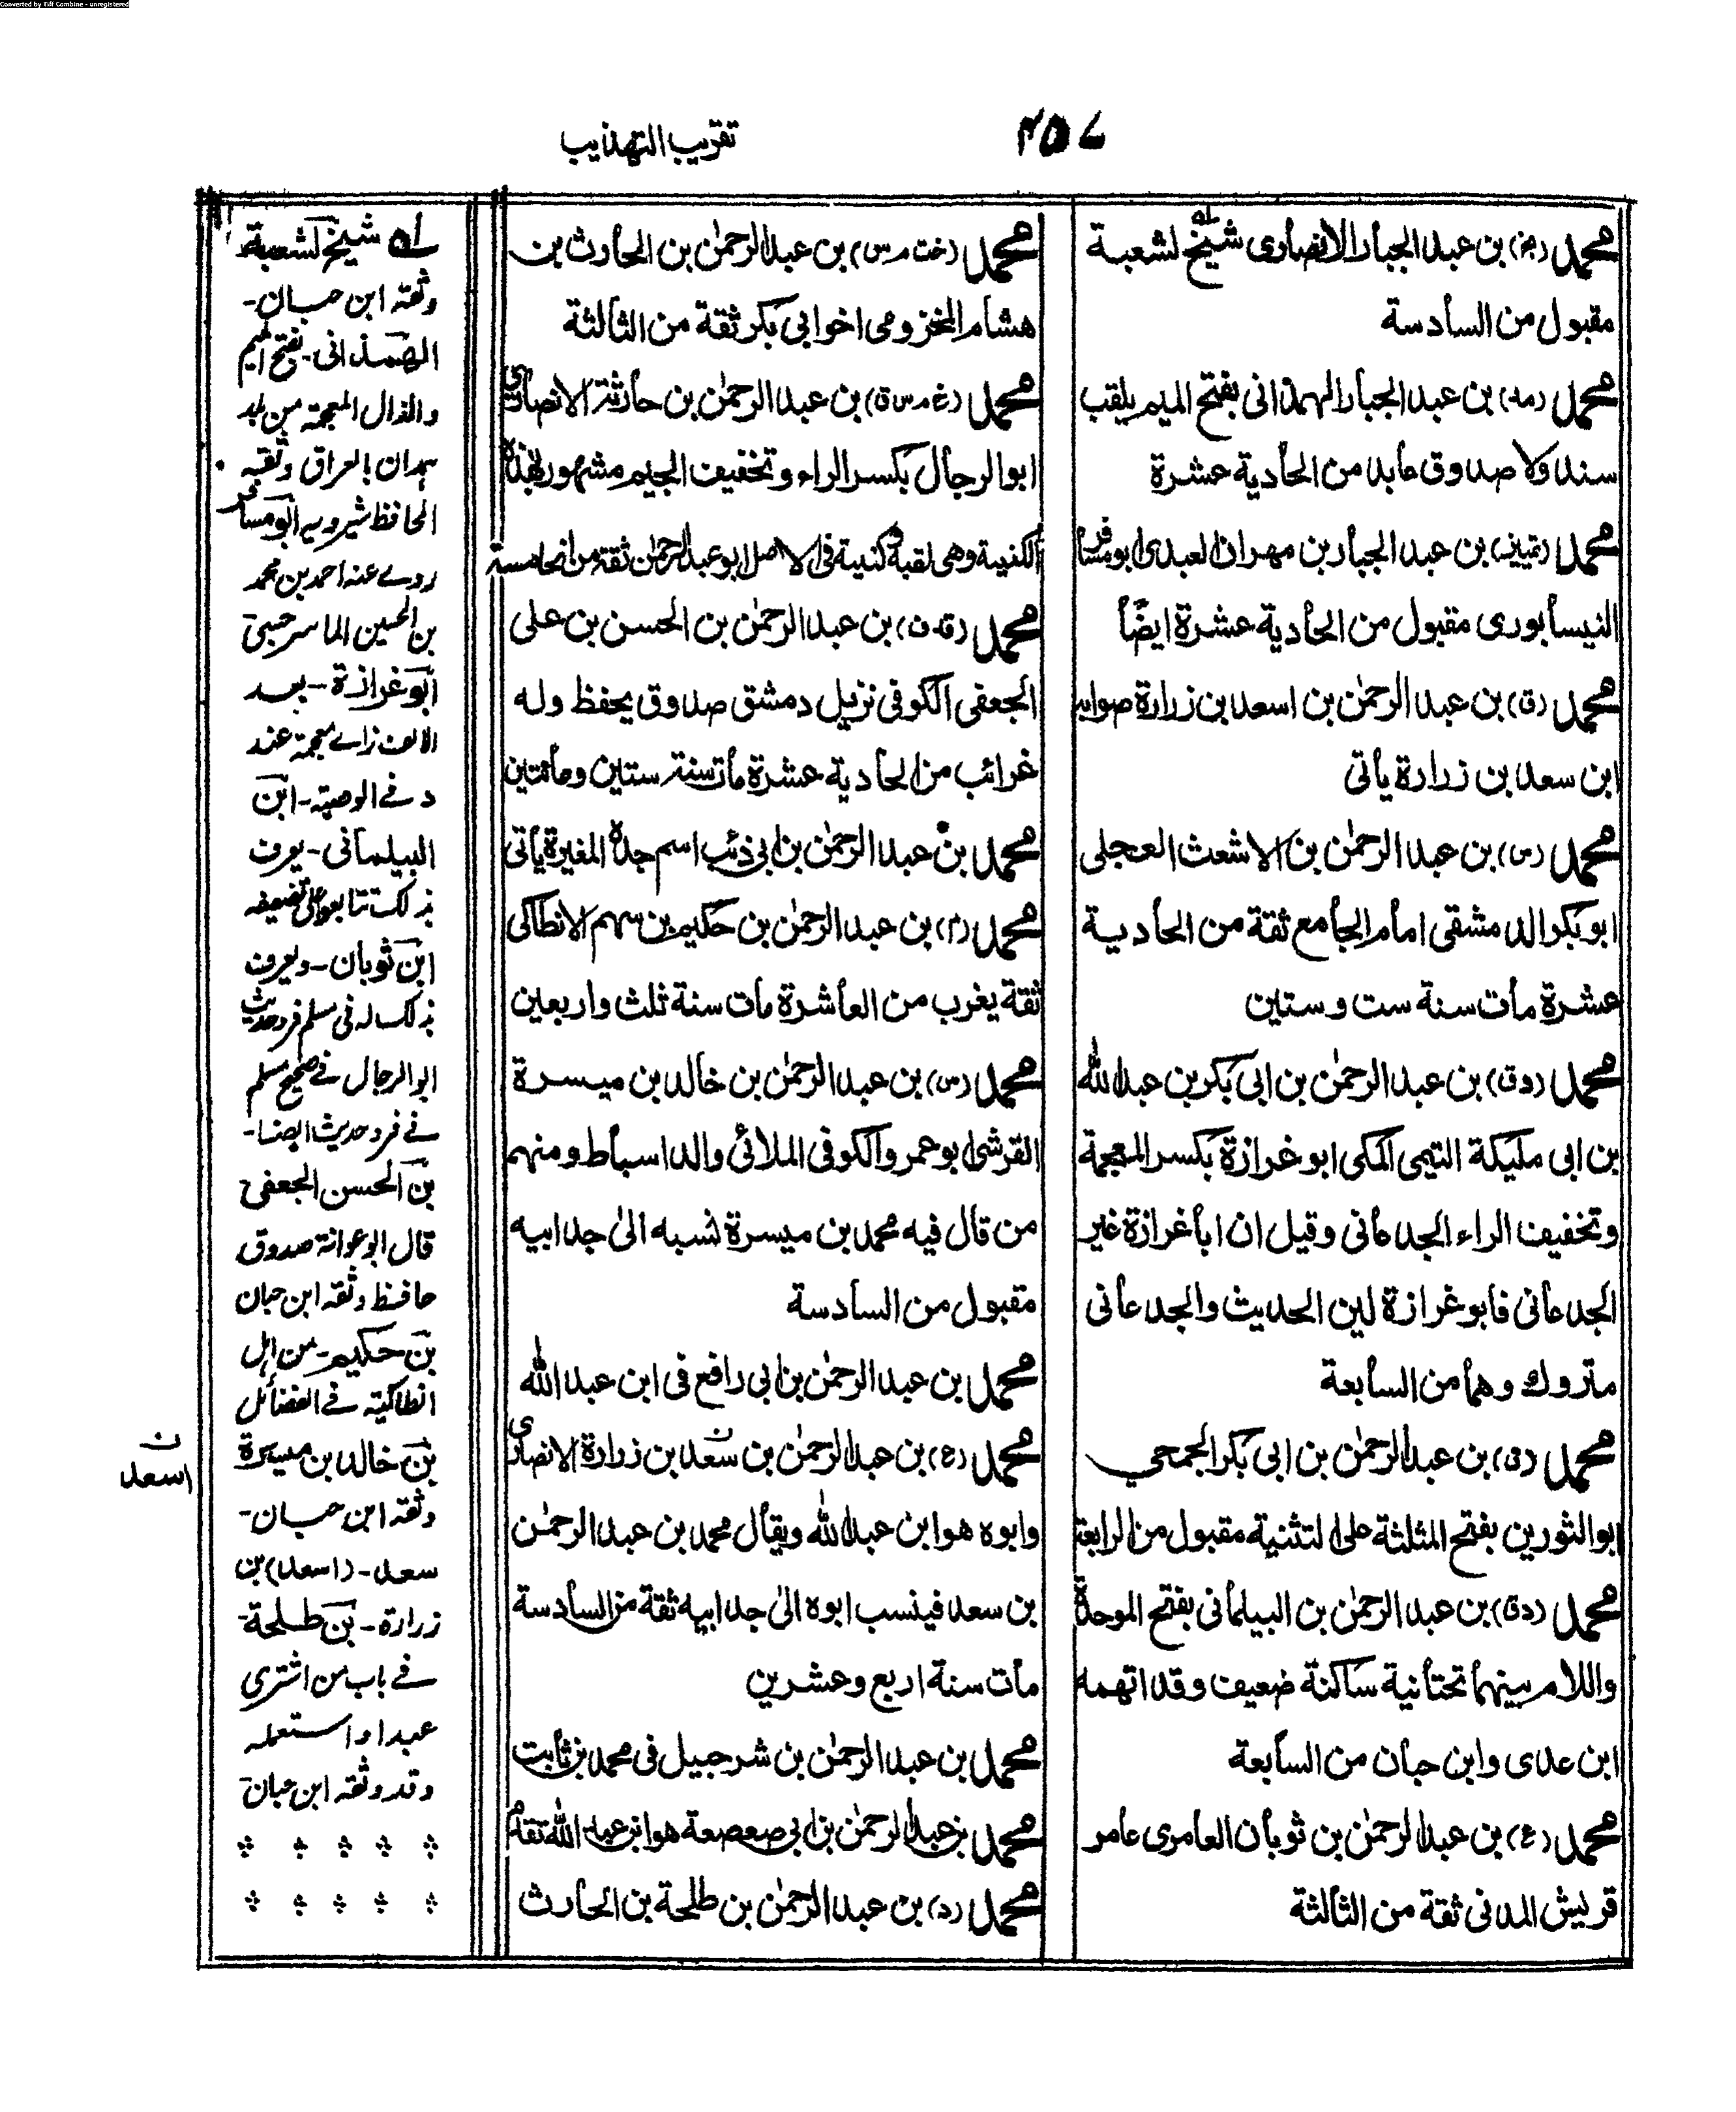 Converted by Tiff Combine - unregistered
تقريب التهذيب
محمد (بخ) بن عبد الجبار الانصاري شيخ لشعبة
مقبول من السادسة
محمد (مد) بن عبد الجبار الهمذاني بفتح الميم يلقب
سندولا صدوق عابد من الحادية عشرة
محمد (تمييز) بن عبد الجبار بن مهران العبدي ابو مسافر
النيسابوري مقبول من الحادية عشرة ايضًا
محمد (ق) بن عبد الرحمٰن بن اسعد بن زرارة صوابه
ابن سعد بن زرارة يأتي
محمد (س) بن عبد الرحمٰن بن الاشعث العجلي
ابو بكر الدمشقي امام الجامع ثقة من الحادية
عشرة مات سنة ست وستين
محمد (دق) بن عبد الرحمٰن بن ابي بكر بن عبد الله
بن ابي مليكة التيمي المكي ابو غرازة بكسر المعجمة
وتخفيف الراء الجدعاني وقيل ان ابا غرازة غير
الجدعاني فابو غرازة لين الحديث والجدعاني
متروك وهما من السابعة
محمد (ق) بن عبد الرحمٰن بن ابي بكر الجمحي
ابو الثورين بفتح المثلثة على التثنية مقبول من الرابعة
محمد (دق) بن عبد الرحمٰن بن البيلماني بفتح الموحدة
واللام بينهما تحتانية ساكنة ضعيف وقد اتهمه
ابن عدي وابن حبان من السابعة
محمد (ع) بن عبد الرحمٰن بن ثوبان العامري عامر
قريش المدني ثقة من الثالثة
محمد (خت م س) بن عبد الرحمٰن بن الحارث بن
هشام المخزومي اخو ابي بكر ثقة من الثالثة
محمد (خ م س ق) بن عبد الرحمٰن بن حارثة الانصاري
ابو الرجال بكسر الراء وتخفيف الجيم مشهور بهذه
الكنية وهي لقبه وكنيته في الاصل ابو عبد الرحمٰن ثقة من الخامسة
محمد (قد ن) بن عبد الرحمٰن بن الحسن بن علي
الجعفي الكوفي نزيل دمشق صدوق يحفظ وله
غرائب من الحادية عشرة مات سنة ستين ومائتين
محمد بن عبد الرحمٰن بن ابي ذئب اسم جده المغيرة يأتي
محمد (م) بن عبد الرحمٰن بن حكيم بن سهم الانطاكي
ثقة يغرب من العاشرة مات سنة ثلث واربعين
محمد (س) بن عبد الرحمٰن بن خالد بن ميسرة
القرشي ابو عمرو الكوفي الملائي والد اسباط ومنهم
من قال فيه محمد بن ميسرة نسبه الى جد ابيه
مقبول من السادسة
محمد بن عبد الرحمٰن بن ابي رافع في ابن عبد الله
محمد (ع) بن عبد الرحمٰن بن سعد بن زرارة الانصاري
وابوه هو ابن عبد الله ويقال محمد بن عبد الرحمٰن
بن سعد فينسب ابوه الى جد ابيه ثقة من السادسة
مات سنة اربع وعشرين
محمد بن عبد الرحمٰن بن شرحبيل في محمد بن ثابت
محمد بن عبد الرحمٰن بن ابي صعصعة هو ابن عبد الله تقدم
محمد (د) بن عبد الرحمٰن بن طلحة بن الحارث
له شيخ لشعبة
وثقه ابن حبان-
الهمذاني- بفتح الميم
والذال المعجمة من بلد
همدان بالعراق وثقه
الحافظ شيرويه ابو مسافر
روے عنه احمد بن محمد
بن الحسين الماسرجسي
ابو غرازة- بعد
الالف زاے معجمة عند
د فے الوصية- ابن
البيلماني- يعرف
بذلك تتابعوا على تضعيفه
ابن ثوبان- ويعرف
بذلك له في مسلم فرد حديث
ابو الرجال فے صحيح مسلم
فے فرد حديث ايضا-
بن الحسن الجعفي
قال ابو عوانة صدوق
حافظ وثقه ابن حبان
بن حكيم- من اهل
انطاكية فے الفضائل
بن خالد بن ميسرة
وثقه ابن حبان-
سعد- (اسعد) بن
زرارة- بن طلحة-
فے باب من اشترى
عبدا واستعمله
وقد وثقه ابن حبان
ن
اسعد